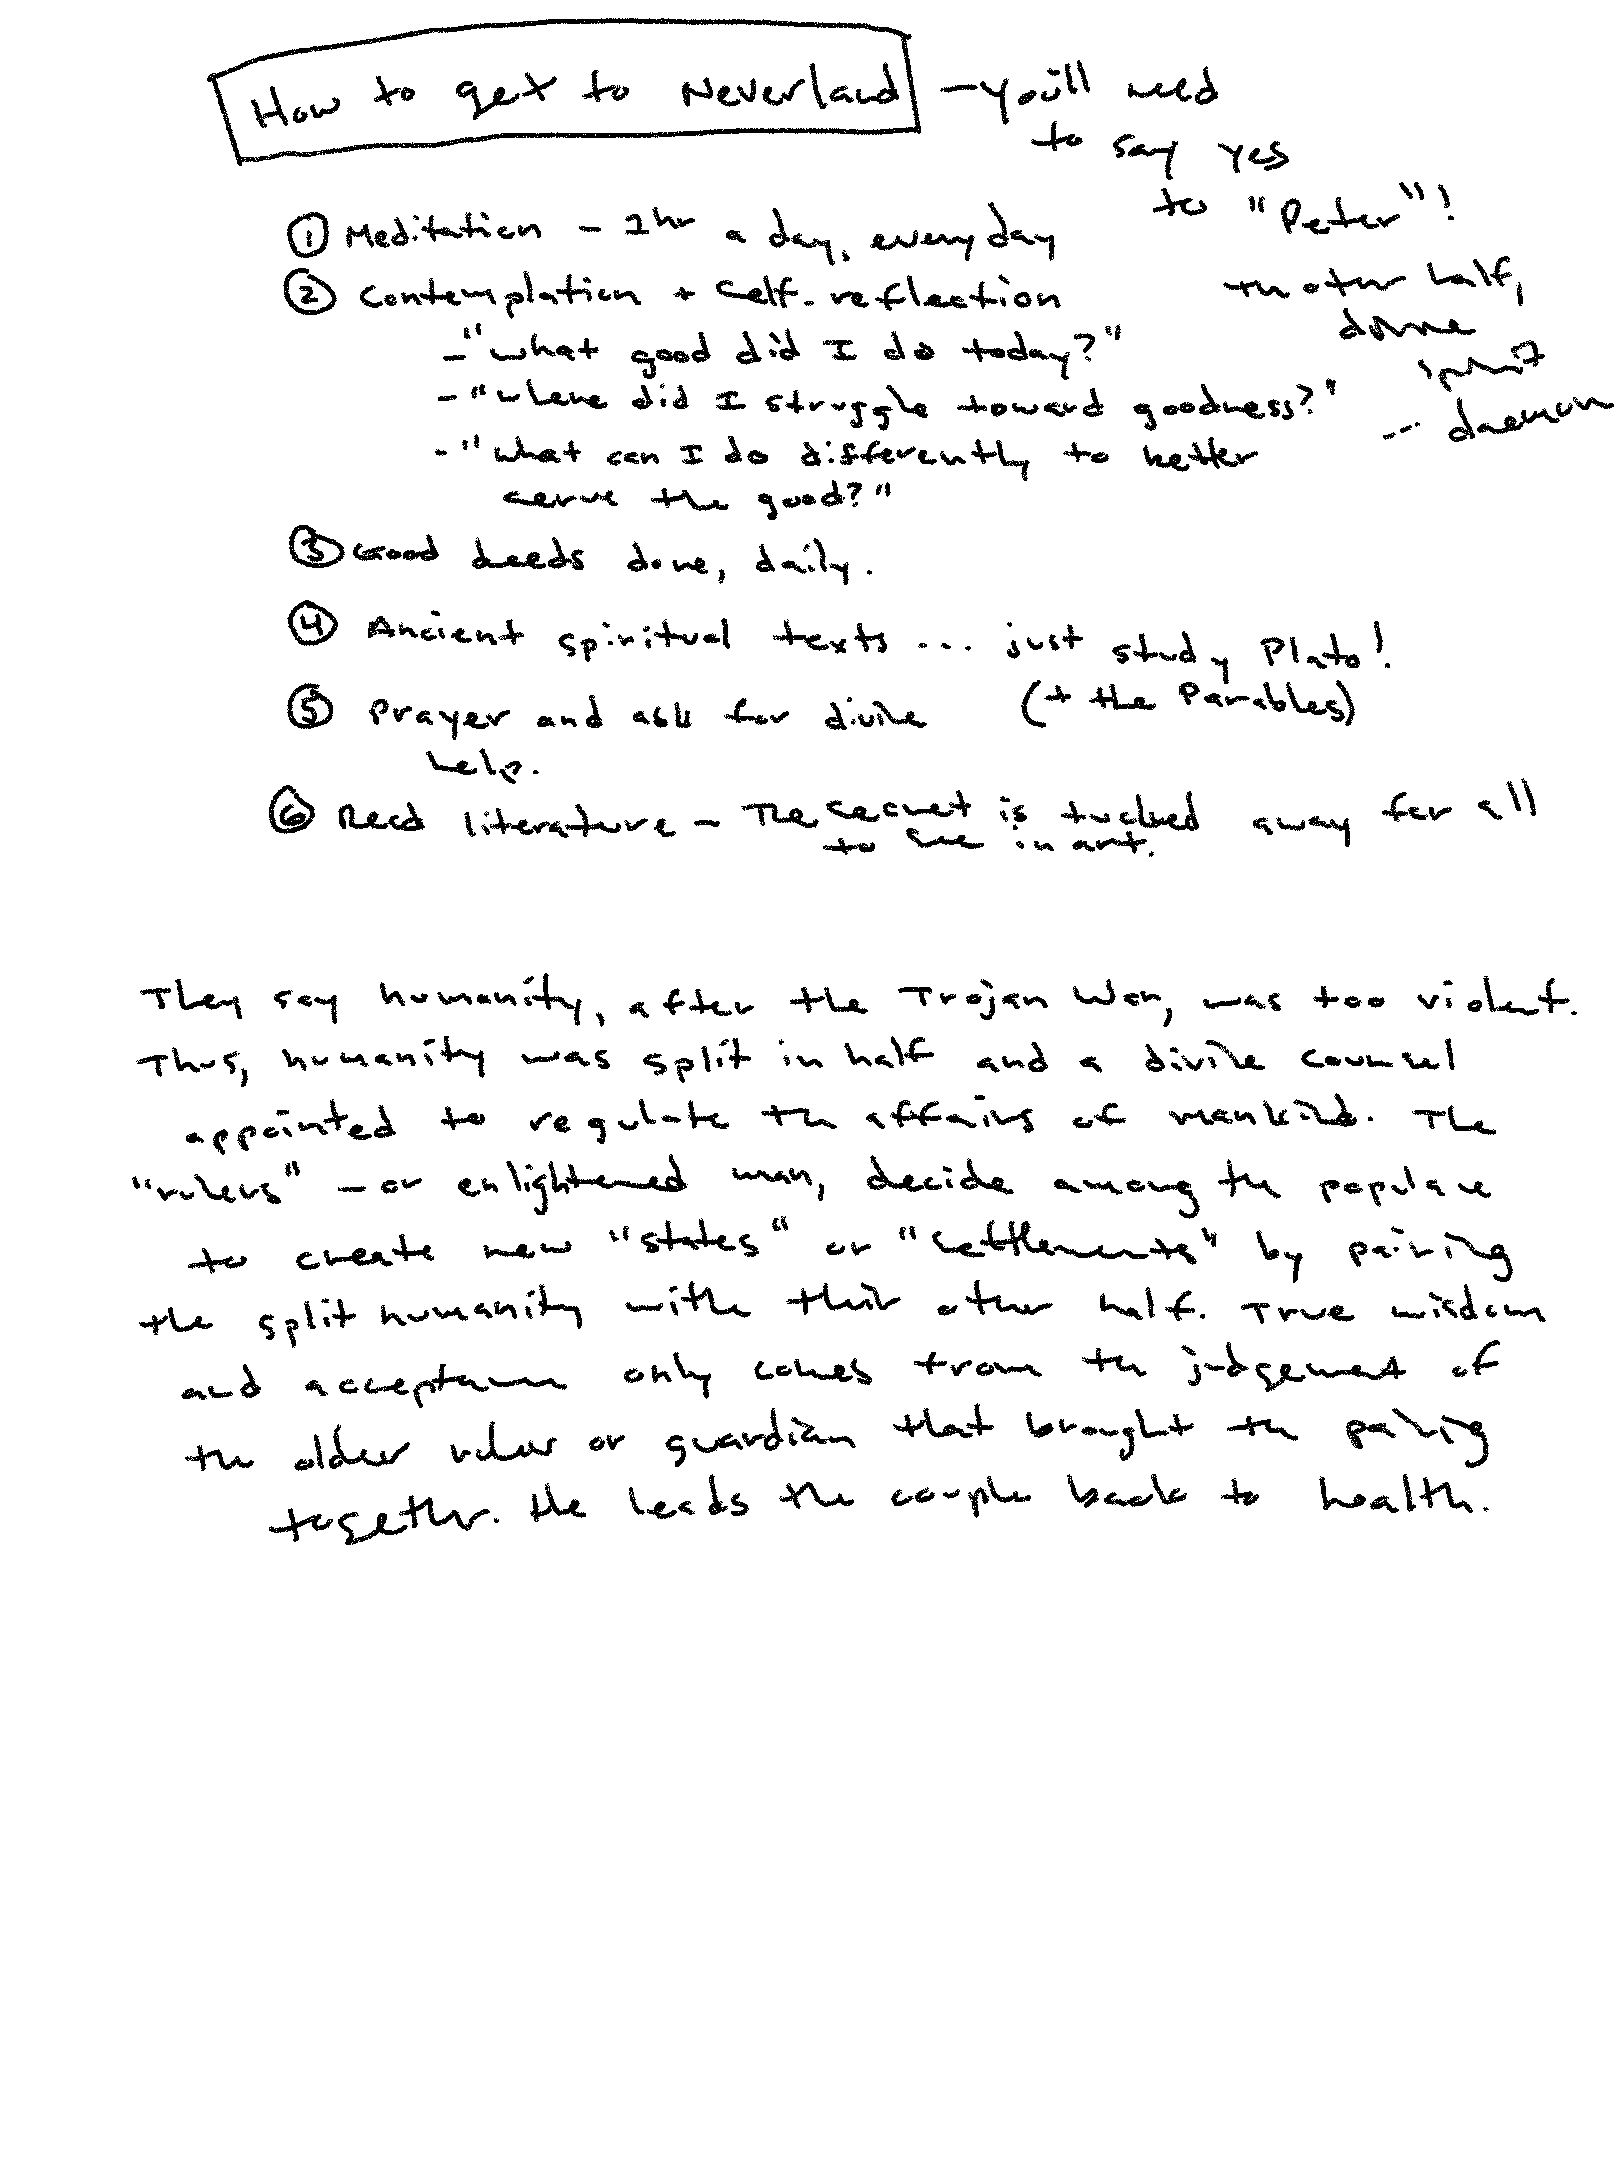 How to get to Neverland - you'll need
to say yes
to "Peter"!
the other half,
divine
spirit
... daemon
① Meditation - 1hr a day, everyday
② Contemplation + Self-reflection
- "what good did I do today?"
- "where did I struggle toward goodness?"
- "what can I do differently to better
serve the good?"
③ Good deeds done, daily.
④ Ancient spiritual texts ... just study Plato!
(+ the Parables)
⑤ Prayer and ask for divine
help.
⑥ Read literature - The secret is tucked away for all
to see in art.
They say humanity, after the Trojan War, was too violent.
Thus, humanity was split in half and a divine counsel
appointed to regulate the affairs of mankind. The
"rulers" - or enlightened man, decide among the populace
to create new "states" or "settlements" by pairing
the split humanity with their other half. True wisdom
and acceptance only comes from the judgement of
the older ruler or guardian that brought the pairing
together. He leads the couple back to health.